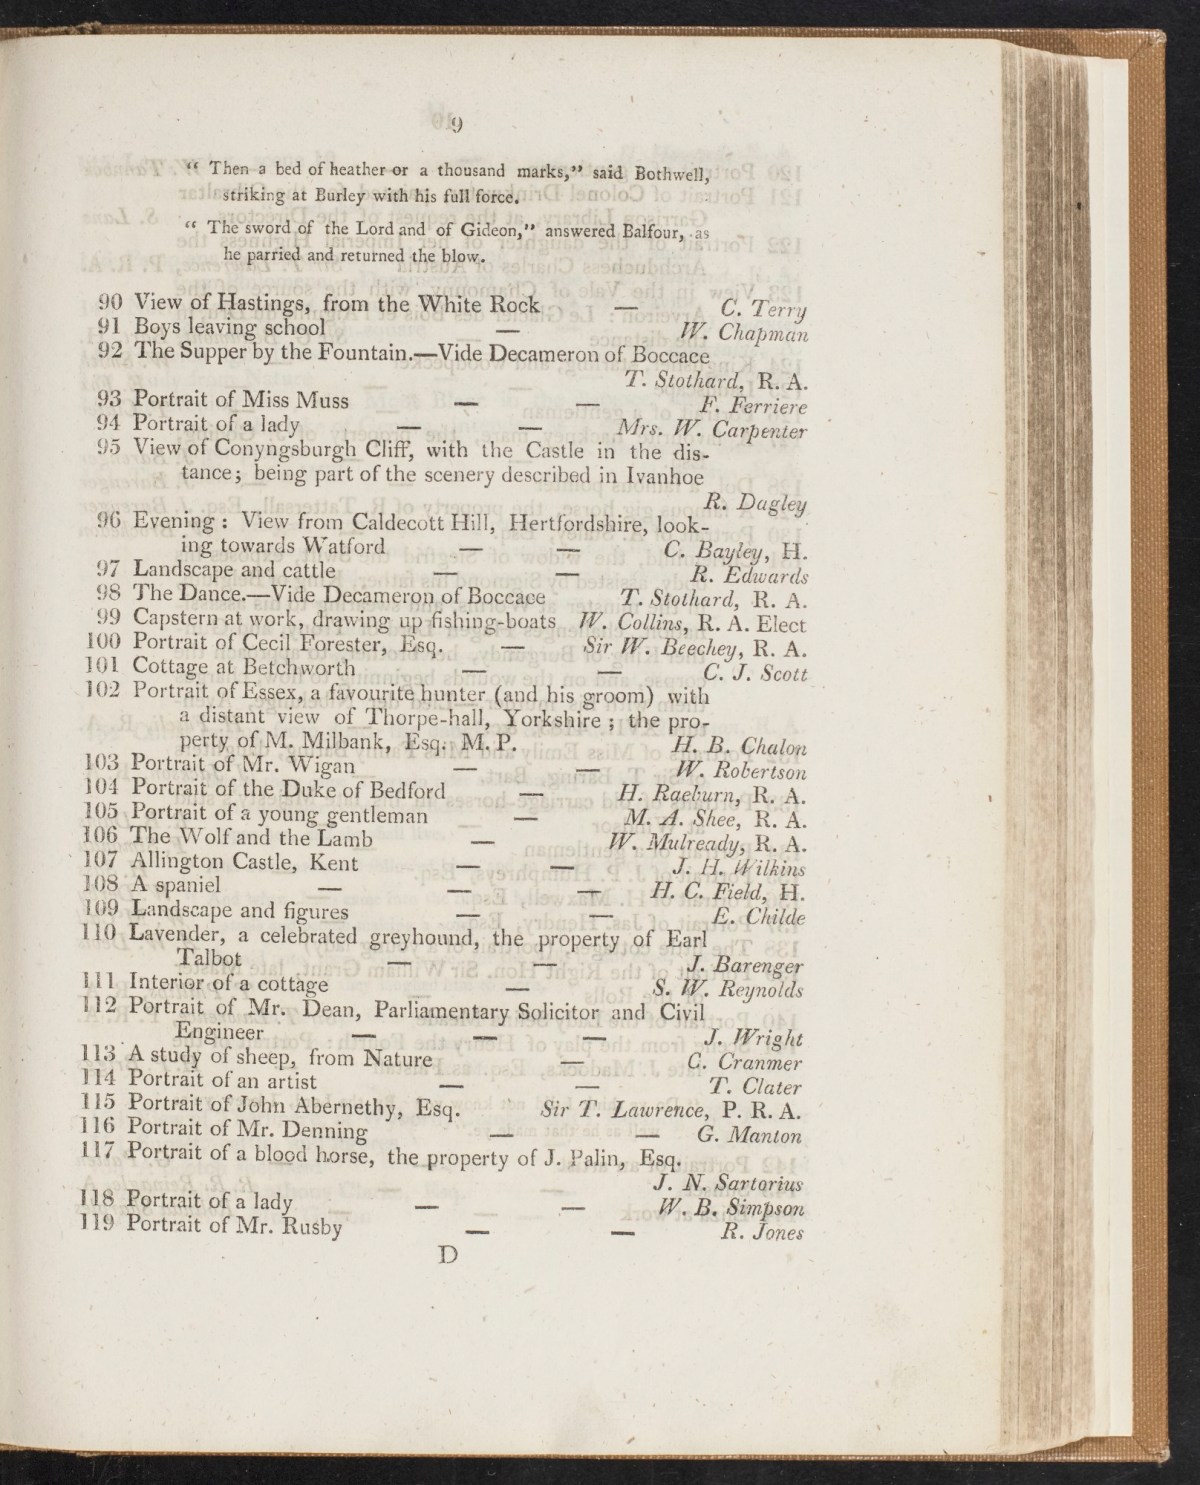 9
“ Then a bed of heather or a thousand marks,” said Bothwell,
striking at Burley with his full force.
“ The sword of the Lord and of Gideon,” answered Balfour, as
he parried and returned the blow.
90 View of Hastings, from the White Rock — C. Terry
91 Boys leaving school — W. Chapman
92 The Supper by the Fountain.—Vide Decameron of Boccace
T. Stothard, R. A.
93 Portrait of Miss Muss — — F. Ferriere
94 Portrait of a lady — — Mrs. W. Carpenter
95 View of Conyngsburgh Cliff, with the Castle in the dis-
tance; being part of the scenery described in Ivanhoe
R. Dagley
96 Evening : View from Caldecott Hill, Hertfordshire, look-
ing towards Watford — — C. Bayley, H.
97 Landscape and cattle — — R. Edwards
98 The Dance.—Vide Decameron of Boccace T. Stothard, R. A.
99 Capstern at work, drawing up fishing-boats W. Collins, R. A. Elect
100 Portrait of Cecil Forester, Esq. — Sir W. Beechey, R. A.
101 Cottage at Betchworth — — C. J. Scott
102 Portrait of Essex, a favourite hunter (and his groom) with
a distant view of Thorpe-hall, Yorkshire ; the pro-
perty of M. Milbank, Esq. M. P. H. B. Chalon
103 Portrait of Mr. Wigan — — W. Robertson
104 Portrait of the Duke of Bedford — H. Raeburn, R. A.
105 Portrait of a young gentleman — M. A. Shee, R. A.
106 The Wolf and the Lamb — W. Mulready, R. A.
107 Allington Castle, Kent — — J. H. Wilkins
108 A spaniel — — — H. C. Field, H.
109 Landscape and figures — — E. Childe
110 Lavender, a celebrated greyhound, the property of Earl
Talbot — — J. Barenger
111 Interior of a cottage — S. W. Reynolds
112 Portrait of Mr. Dean, Parliamentary Solicitor and Civil
Engineer — — — J. Wright
113 A study of sheep, from Nature — C. Cranmer
114 Portrait of an artist — — T. Clater
115 Portrait of John Abernethy, Esq. Sir T. Lawrence, P. R. A.
116 Portrait of Mr. Denning — — G. Manton
117 Portrait of a blood horse, the property of J. Palin, Esq.
J. N. Sartorius
118 Portrait of a lady — — W. B. Simpson
119 Portrait of Mr. Rusby — — R. Jones
D